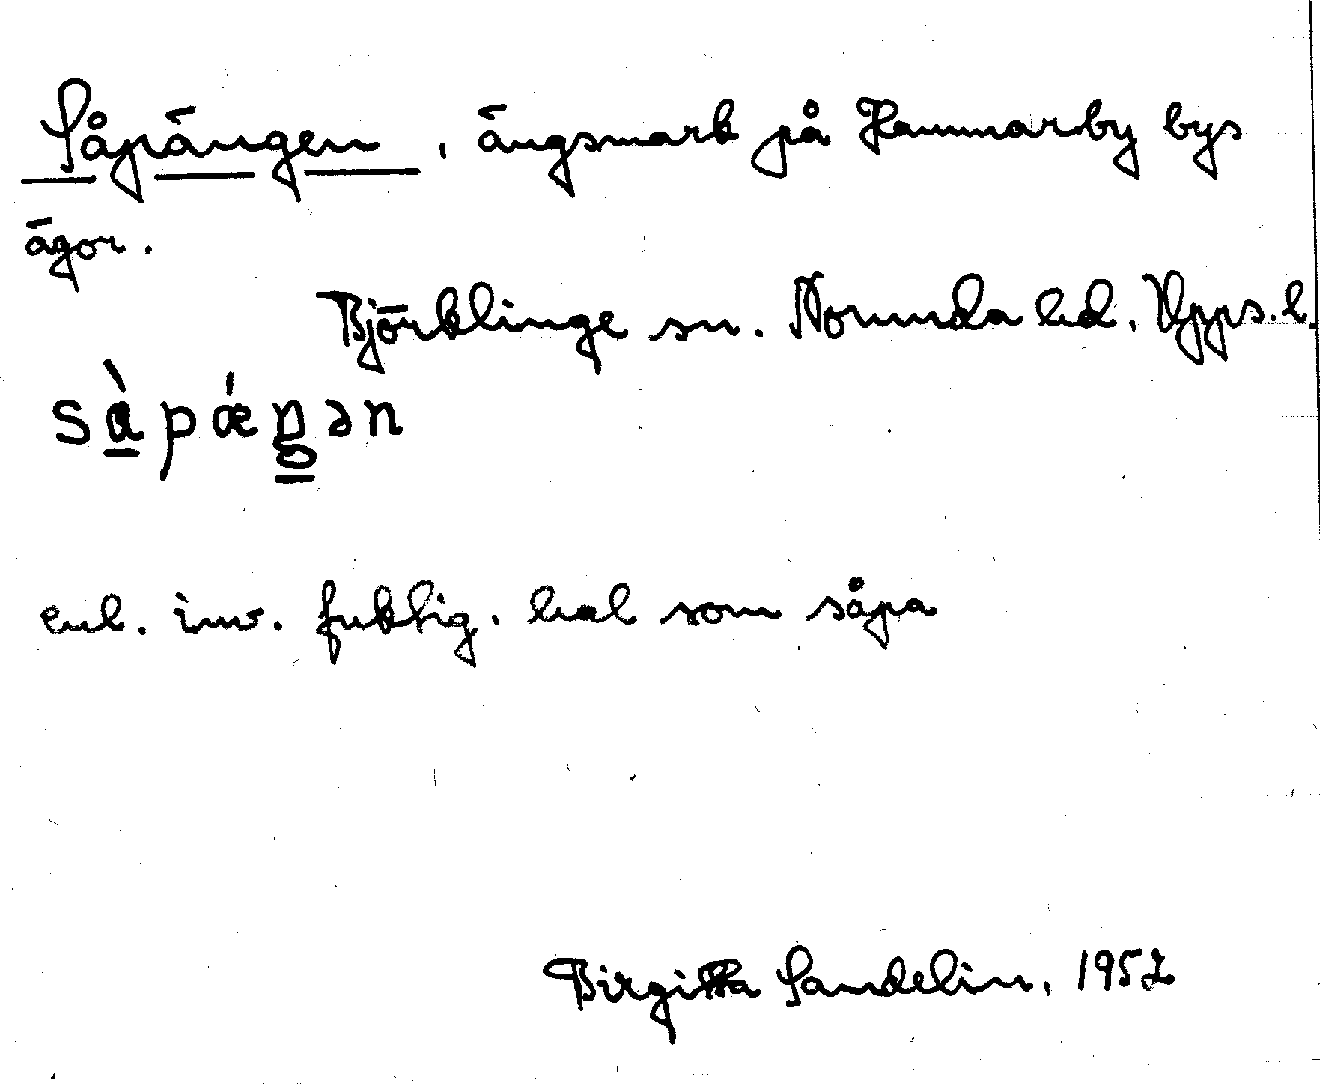 Såpängen, ängsmark på Hammarby bys
ägor.
Björklinge sn. Norunda hd. Upps. l.
sὰpǽŋən
enl. inv. fuktig. hal som såpa
Birgitta Sandelin, 1952